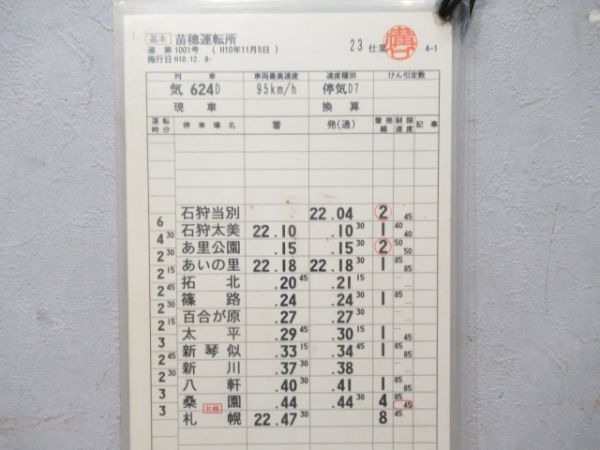 基本 苗穂運転所
達 第1001号 (H10年11月5日)
施行日H10.12. 8-
23 仕業
4-1
列車 車両最高速度 速度種別 けん引定数
気 624D 95km/h 停気D7
現車 換算
運転時分 停車場名 着 発(通) 着発線 制限速度 記事
石狩当別 22.04 2 45
6
石狩太美 22.10 .10 30 1 40 40
4 30
あ里公園 .15 .15 30 2 50 50
2 30
あいの里 22.18 22.18 30 1 85 85
2 15
拓北 .20 45 .21 15
2 30
篠路 .24 .24 30 1 85
2 30
百合が原 .27 .27 30
2 15
太平 .29 45 .30 15 1 45
3
新琴似 .33 15 .34 45 1 85
2 45
新川 .37 30 .38
2 30
八軒 .40 30 .41 1 85
3
桑園 北線 .44 .44 30 4 85 45
3
札幌 22.47 30 8 45